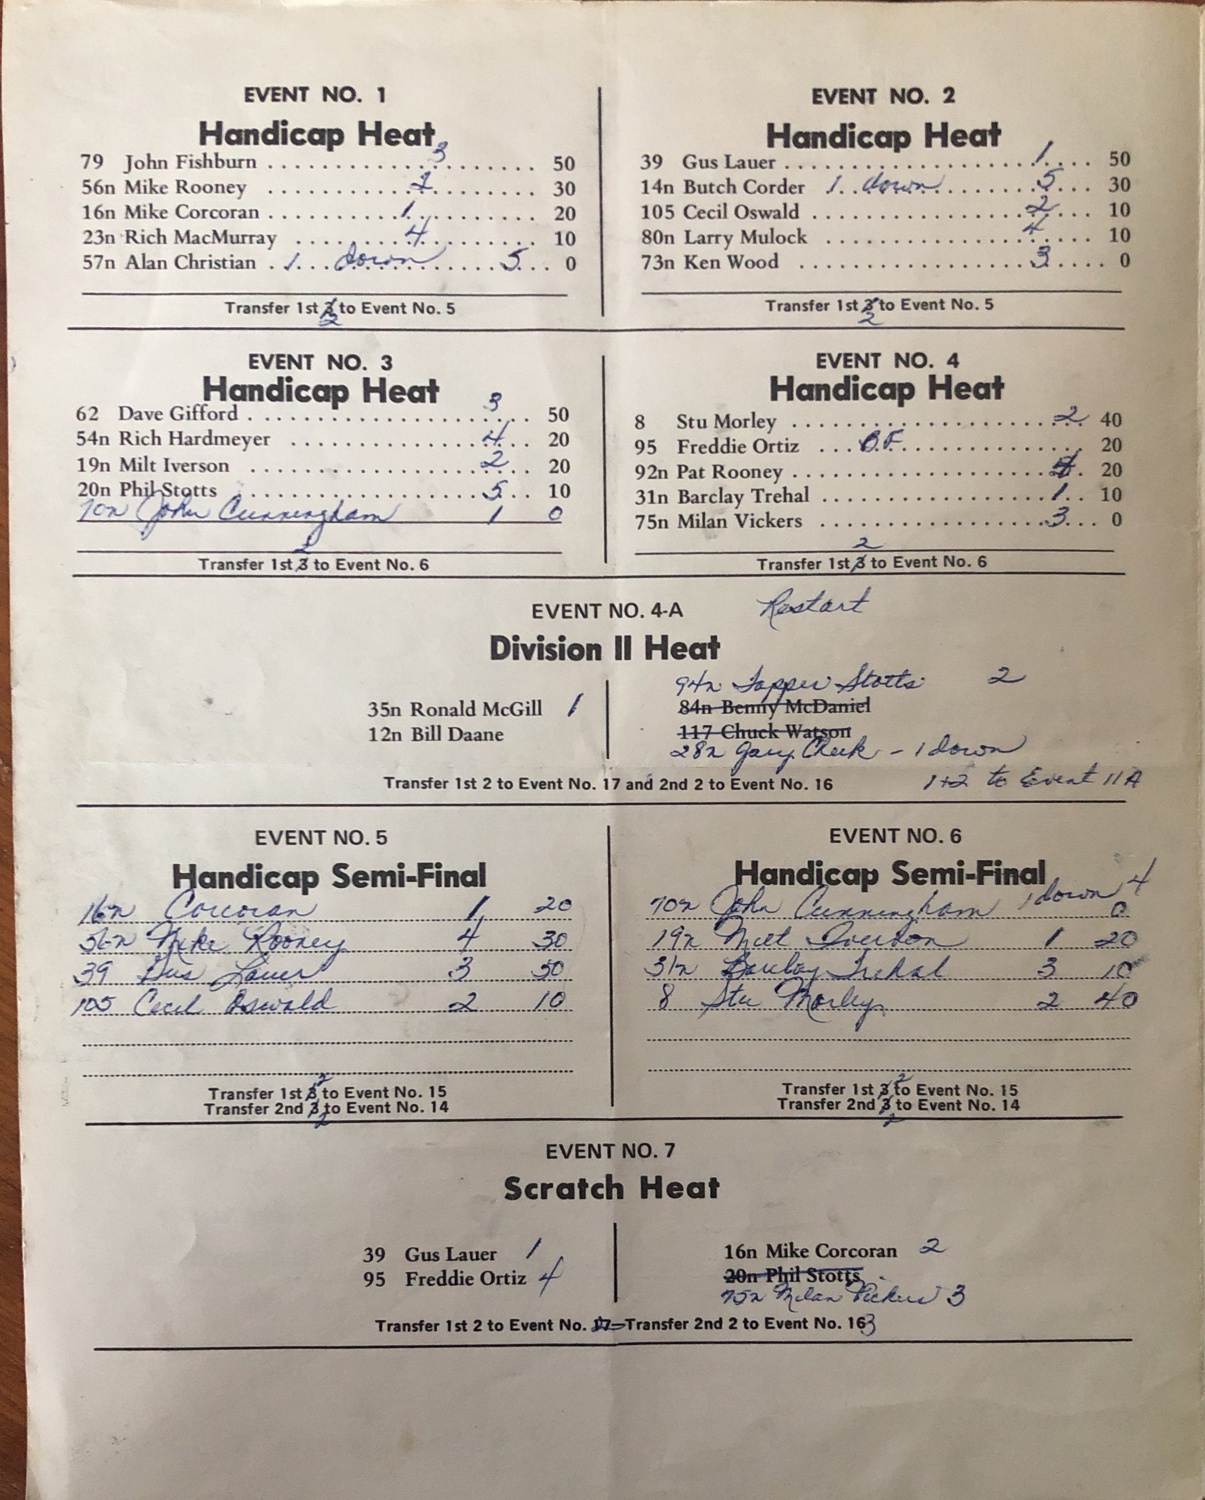 EVENT NO. 1
Handicap Heat
79 John Fishburn . . . 3 . . . 50
56n Mike Rooney . . . 2 . . . 30
16n Mike Corcoran . . . 1 . . . 20
23n Rich MacMurray . . . 4 . . . 10
57n Alan Christian . 1 . . . down . . . 5 . . . 0
Transfer 1st 3 to Event No. 5
2
EVENT NO. 2
Handicap Heat
39 Gus Lauer . . . 1 . . . 50
14n Butch Corder 1 . . down . . . 5 . . . 30
105 Cecil Oswald . . . 2 . . . 10
80n Larry Mulock . . . 4 . . . 10
73n Ken Wood . . . 3 . . . 0
Transfer 1st 3 to Event No. 5
2
EVENT NO. 3
Handicap Heat
62 Dave Gifford . . . 3 . . . 50
54n Rich Hardmeyer . . . 4 . . . 20
19n Milt Iverson . . . 2 . . . 20
20n Phil Stotts . . . 5 . . . 10
70n John Cunningham 1 0
2
Transfer 1st 3 to Event No. 6
EVENT NO. 4
Handicap Heat
8 Stu Morley . . . 2 . . . 40
95 Freddie Ortiz . . . B.F. . . . 20
92n Pat Rooney . . . 4 . . . 20
31n Barclay Trehal . . . 1 . . . 10
75n Milan Vickers . . . 3 . . . 0
2
Transfer 1st 3 to Event No. 6
EVENT NO. 4-A Restart
Division II Heat
35n Ronald McGill 1
12n Bill Daane
94n Topper Stotts 2
84n Benny McDaniel
117 Chuck Watson
28n Gary Cheek - 1 down
Transfer 1st 2 to Event No. 17 and 2nd 2 to Event No. 16
1+2 to Event 11A
EVENT NO. 5
Handicap Semi-Final
16n Corcoran 1 20
56n Mike Rooney 4 30
39 Gus Lauer 3 50
105 Cecil Oswald 2 10
2
Transfer 1st 3 to Event No. 15
Transfer 2nd 3 to Event No. 14
2
EVENT NO. 6
Handicap Semi-Final
70n John Cunningham 1 down 4 0
19n Milt Iverson 1 20
31n Barclay Trehal 3 10
8 Stu Morley 2 40
2
Transfer 1st 3 to Event No. 15
Transfer 2nd 3 to Event No. 14
2
EVENT NO. 7
Scratch Heat
39 Gus Lauer 1
95 Freddie Ortiz 4
16n Mike Corcoran 2
20n Phil Stotts
75n Milan Vickers 3
Transfer 1st 2 to Event No. 17—Transfer 2nd 2 to Event No. 16 3